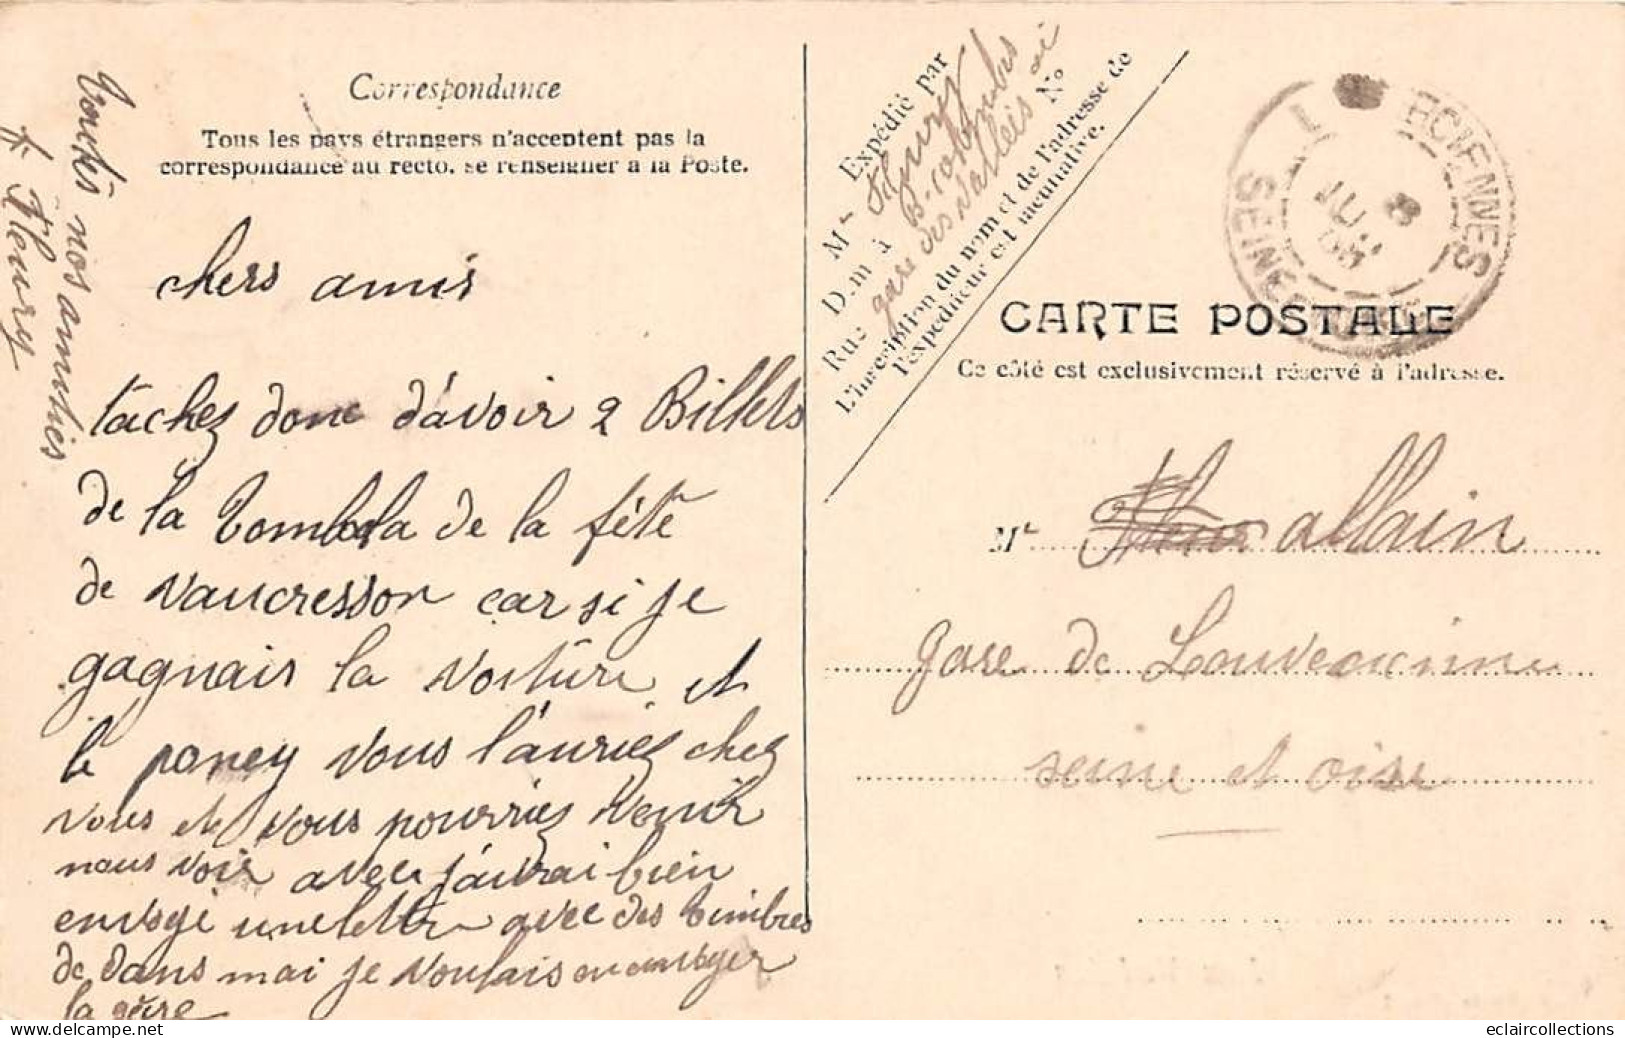 Correspondance
Tous les pays étrangers n'acceptent pas la
correspondance au recto. se renseigner à la Poste.
chers amis
tachez donc d'avoir 2 Billets
de la tombola de la fête
de vaucresson car si je
gagnais la voiture et
le poney vous l'auriez chez
vous et vous pourriez venir
nous voir avec j'aurai bien
envoyé une lettre avec des timbres
de dans mai je voulais en envoyer
la
toutes nos amitiés
Fleury
Expédié par
Mr Fleury
D.m à B. colombes
Rue gare des vallées No
L'inscription du nom et de l'adresse de
l'expéditeur est facultative.
HCIENNES
SEINE
8
JUIL
CARTE POSTALE
Ce côté est exclusivement réservé à l'adresse.
Mr allain
gare de Louveciennes
seine et oise
eclaircollections